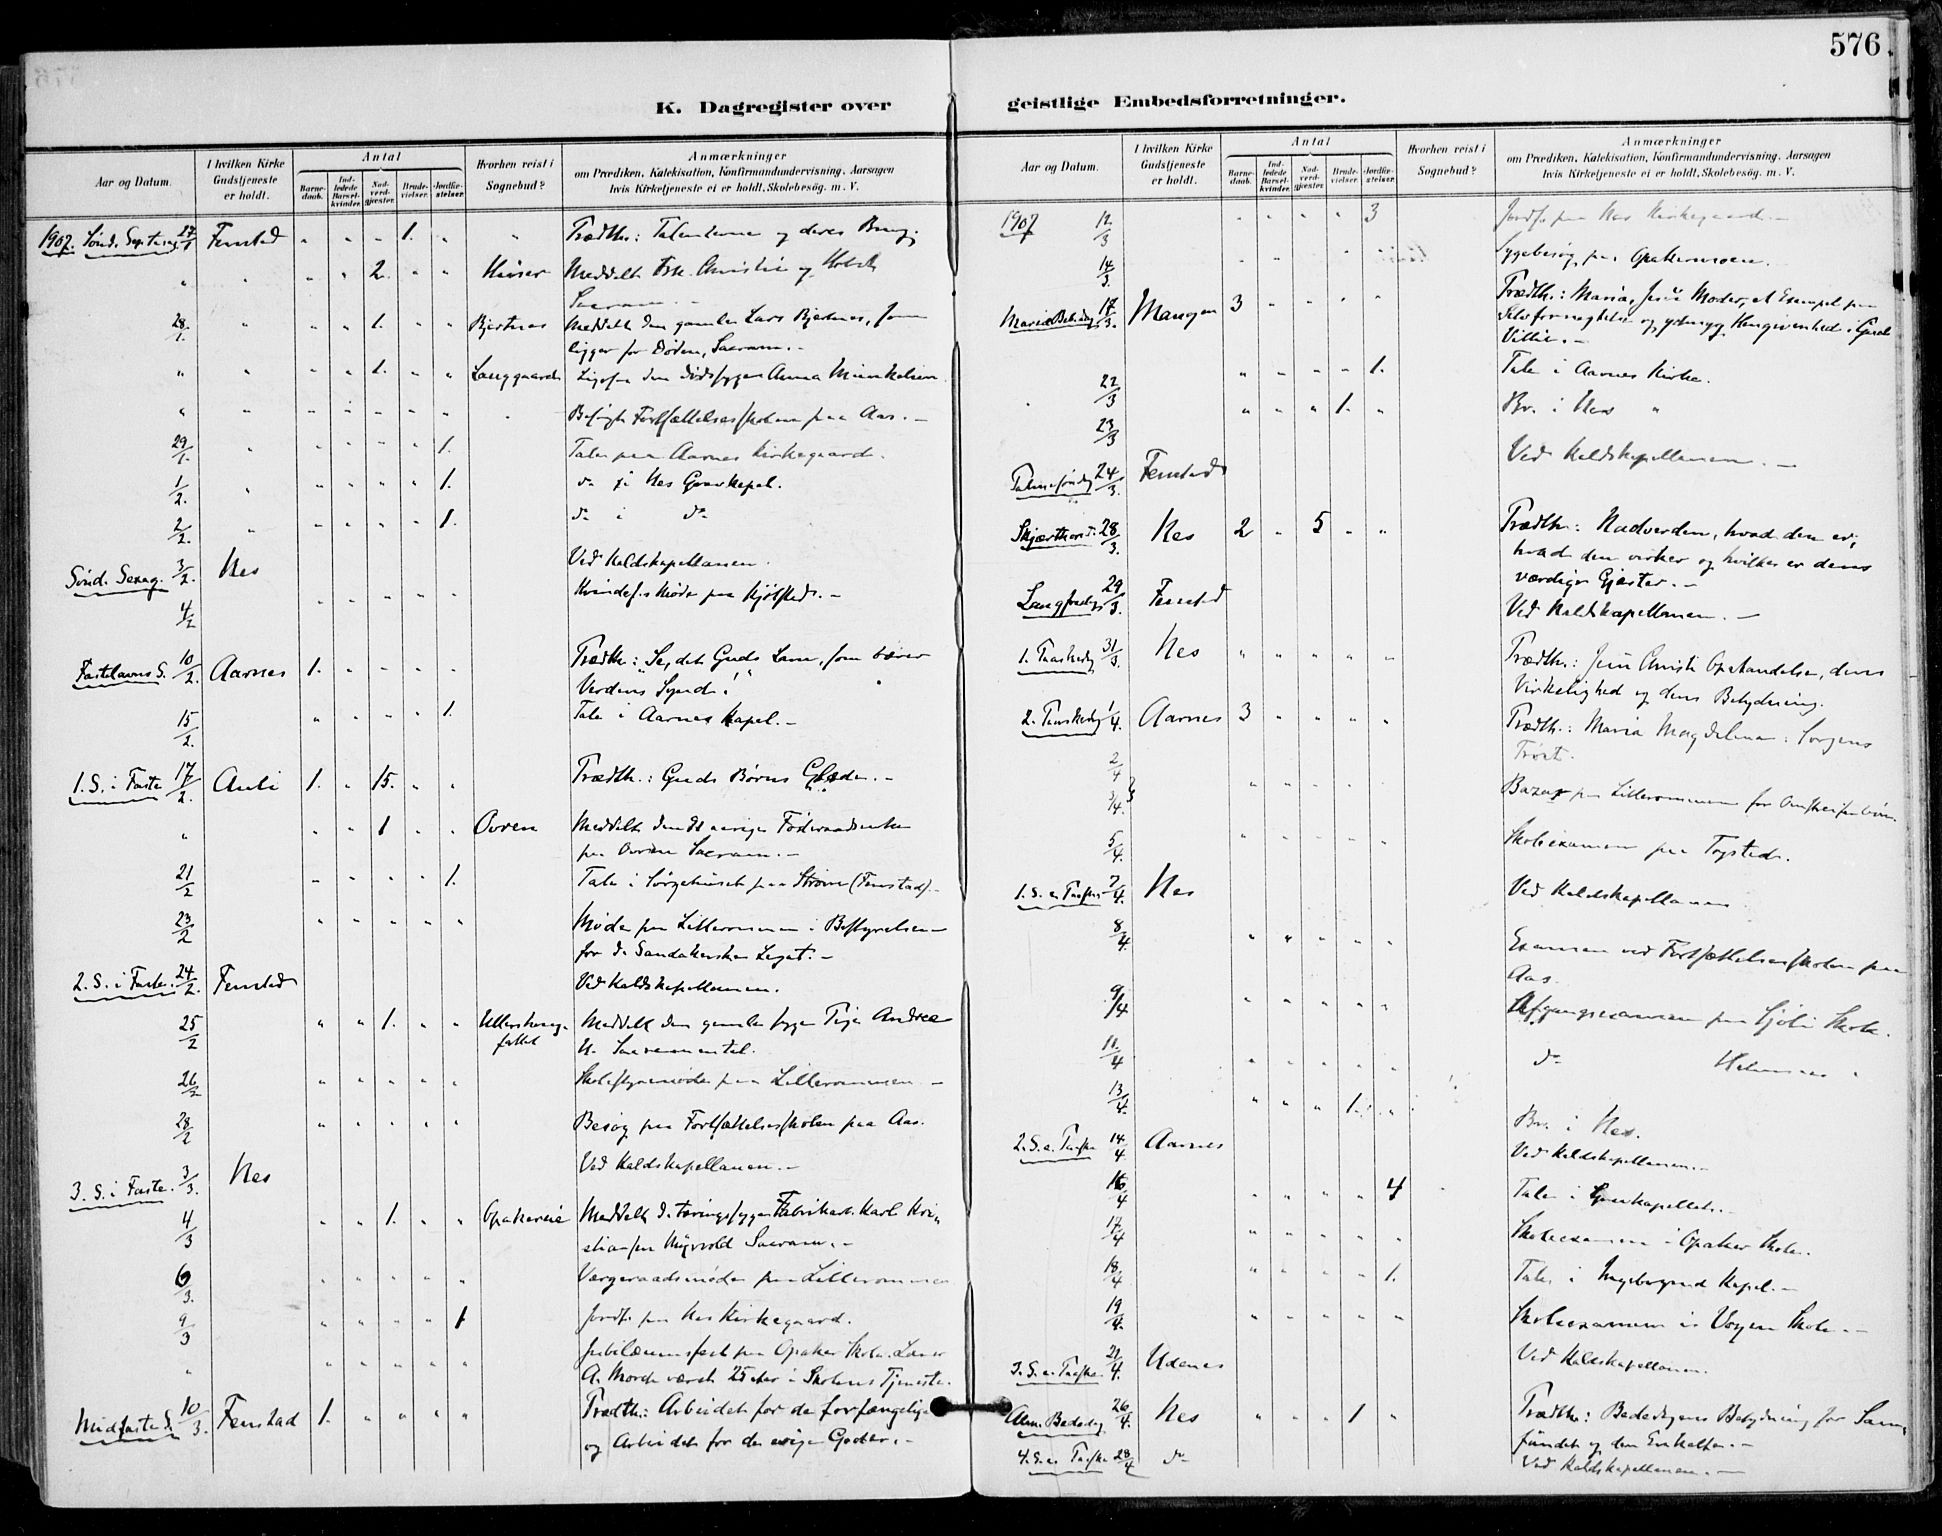 576
K. Dagregister over geistlige Embedsforretninger.
Aar og Datum.
I hvilken Kirke Gudstjeneste er holdt.
Antal
Barne-daab.
Ind-ledede Barsel-kvinder.
Nad-verd-gjester.
Brude-vielser.
Jordfæ-stelser.
Hvorhen reist i Sognebud?
Anmærkninger
om Prædiken, Katekisation, Konfirmandundervisning, Aarsagen
hvis Kirketjeneste ei er holdt, Skolebesøg, m. V.
1907. Sønd. Septuag. 27/1 Fenstad " " " 1. " " Prædth.: Talenterne og deres Brug.
" " " " 2. " " Huser Meddelt Christin og
Sacram. -
28/1. " " " 1. " " Bjertnes Meddelt den gamle Lars Bjertnes, som
ligger for Døden, Sacram. -
" " " " 1. " " Langgaard Ligesaa den dødssyge Anna Mikkelsen.
" " " " " " " " Besøgte Fortsættelsesskolen paa Aas. -
29/1. " " " " " 1. Tale paa Aarnes Kirkegaard.
1/2. " " " " " 1. do i Nes Gravkapel.
2/2. " " " " " 1. do i do
Sønd. Sexag. 3/2. Nes Ved Kaldskapellanen.
4/2 " " " " " Kvindefs. Møde paa Kjølstad. -
Fastelavns S. 10/2. Aarnes 1. " " " " Prædth.: "Se, det Guds Lam, som bærer
Verdens Synd!"
15/2. " " " " 1. Tale i Aarnes Kapel. -
1. S. i Faste 17/2. Auli 1. " 15. " " Prædth.: Guds Børns Glæde. -
" " " 1 " " Ovren Meddelt den
paa Ovren Sacram. -
21/2 " " " " 1. Tale i Sørgehuset paa Strøm (Fenstad). -
23/2 " " " " " Møde paa Lillerommen i Bestyrelsen
for de Sandakerske Legat. -
2. S. i Faste. 24/2. Fenstad Ved Kaldskapellanen.
25/2 " " 1. " " Meddelt den gamle syge Pige Andrea
H. Sacramentet.
26/2 " " " " " Skolestyremøde paa Lillerommen -
28/2 " " " " " Besøg paa Fortsættelsesskolen paa Aas.
3. S. i Faste. 3/3. Nes Ved Kaldskapellanen. -
4/3 " " 1. " " Opakereie Meddelt d. tæringssyge Fabrikarb. Karl Kri-
stiansen Myrvold Sacram. -
6/3. " " " " " Vergeraadsmøde paa Lillerommen
9/3 " " " " 1 Jordf. paa Nes Kirkegaard.
" " " " " " Jubilæumsfest paa Opaker Skole. Lærer
A. Mork været 25 Aar i Skolens Tjeneste.
Midfaste S. 10/3. Fenstad 1. " " " " Prædth.: Arbeidet for de forfængelige
og Arbeidet for de evige Goder. -
Aar og Datum.
I hvilken Kirke Gudstjeneste er holdt.
Antal
Barne-daab.
Ind-ledede Barsel-kvinder.
Nad-verd-gjester.
Brude-vielser.
Jordfæ-stelser.
Hvorhen reist i Sognebud?
Anmærkninger
om Prædiken, Katekisation, Konfirmandundervisning, Aarsagen
hvis Kirketjeneste ei er holdt, Skolebesøg, m. V.
1907 12/3 " " " " 3 Jordf. paa Nes Kirkegaard. -
14/3. " " " " " Sygebesøg paa Opakermoen.
Mariæ Bebud. 17/3. Mangen 3 " " " " Prædth.: Maria, Jesu Moder, et Exempel paa
Selvfornegtelse og ydmyg Hengivenhed i Guds
Villie. -
22/3 " " " " 1. Tale i Aarnes Kirke.
23/3 " " " 1. " Br. i Nes "
Palmesøndag 24/3. Fenstad Ved Kaldskapellanen. -
Skjærthorsd. 28/3. Nes 2 " 5 " " Prædth.: Nadverden, hvad den er,
hvad den virker og hvilke er dens
værdige Gjæster. -
Langfredag 29/3. Fenstad Ved Kaldskapellanen. -
1. Paaskedag 31/3. Nes " " " " " Prædth.: Jesu Christi Opstandelse, dens
Virkelighed og dens Betydning.
2. Paaskedag 1/4. Aarnes 3 " " " " Prædth.: Maria Magdalena: Sorgens
Trøst.
2/4 3/4. } " " " " Bazar paa Lillerommen for
5/4. " " " " " Skoleexamen paa Togstad.
1. S. e. Paaske 7/4. Nes Ved Kaldskapellanen
8/4. " " " " " Examen ved Fortsættelsesskolen paa
Aas.
9/4 " " " " " Afgangsexamen paa Fjøli Skole.
11/4 " " " " " do
13/4. " " " 1. " Br. i Nes.
2. S. e. Paaske 14/4 Aarnes Ved Kaldskapellanen. -
16/4 " " " " 4 Tale i Gravkapellet. -
17/4 " " " " " Skoleexamen i Opaker Skole.
18/4 " " " " 1. Tale i Kapel. -
19/4. " " " " " Skoleexamen i Skole. -
3. S. e. Paaske 21/4. Udenes Ved Kaldskapellanen.
Alm. Bededag 26/4. Nes " " " 1 " Prædth.: Bededagens Betydning for Sam-
fundet og den Enkelte. -
4. S. e. Paaske 28/4 do Ved Kaldskapellanen. -